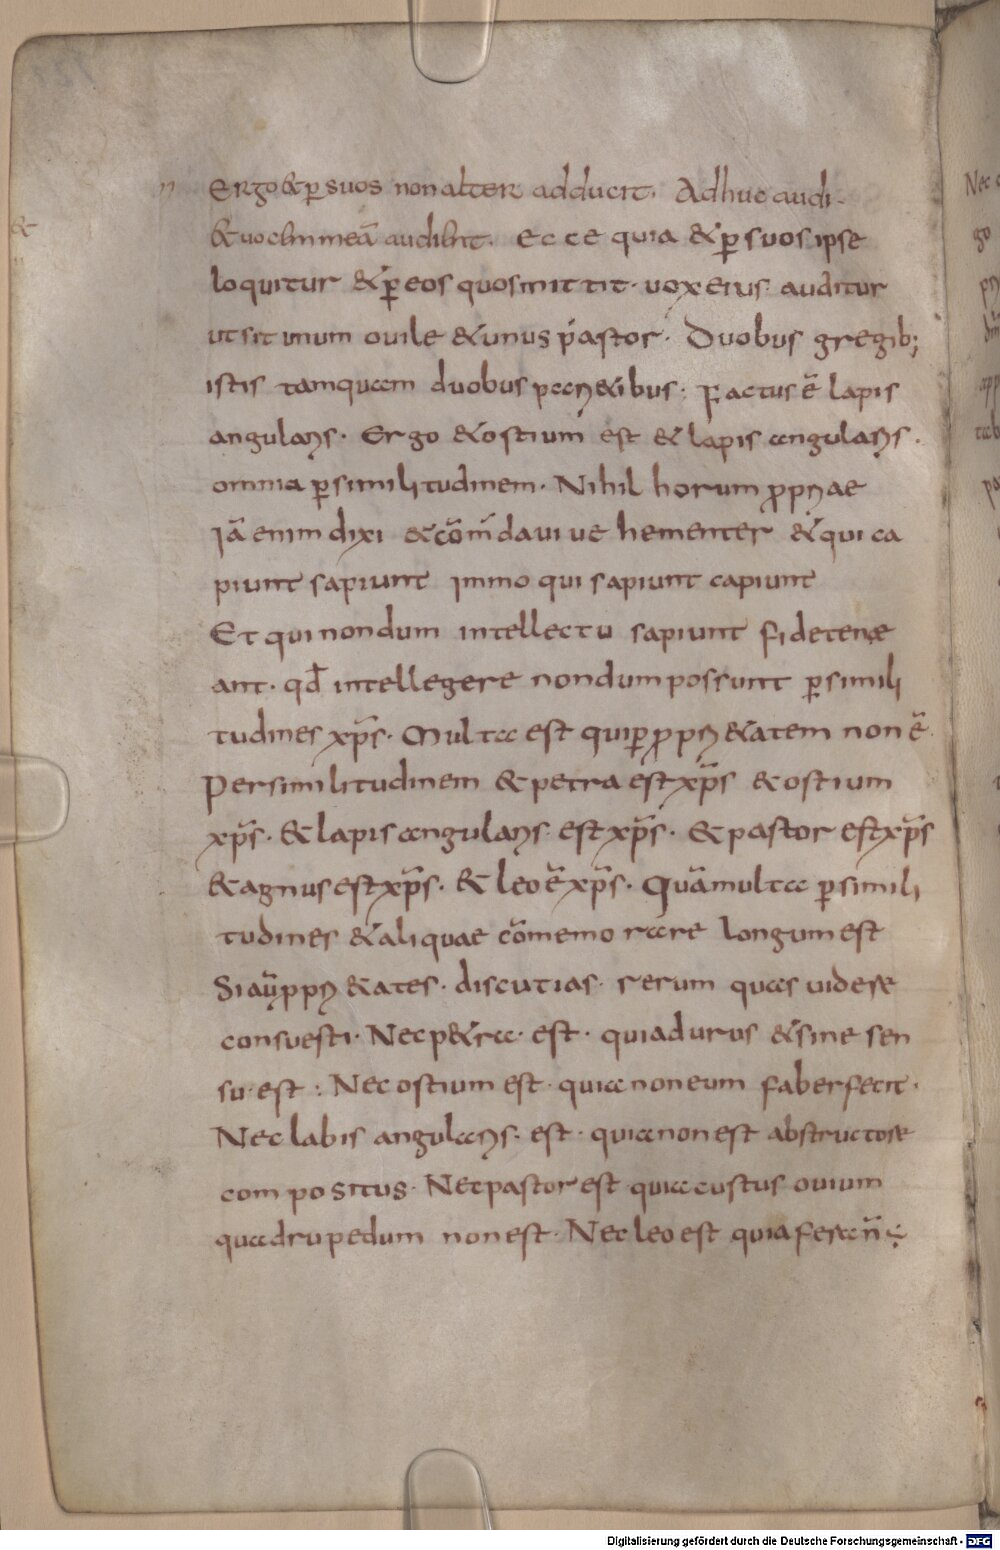 Ergo & p̄ suos non alter adducit. Adhuc audi.
& uocem meā audient. Ecce quia & p̄ suos ipse
loquitur & p̄ eos quos mittit. uox eius auditur
ut sit unum ouile & unus pastor. Duobus gregib;
istis tamquam duobus pari&ibus. Factus ē lapis
angularis. Ergo & ostium est & lapis angularis.
omnia p̄ similitudinem. Nihil horum propriae
Iā enim dixi & cōmdaui uehementer & qui ca
piunt sapiunt immo qui sapiunt capiunt
Et qui nondum intellectu sapiunt fide tene
ant. qđ intellegere nondum possunt p̄ simili
tudines xp̄s. Multa est qui p̄ propri&atem non ē.
Per similitudinem & petra est xp̄s & ostium
xp̄s. & lapis angularis est xp̄s. & pastor est xp̄s
& agnus est xp̄s. & leo ē xp̄s. Quā multa p̄ simili
tudines & aliquae cōmemorare longum est
Si aū proppri&ates. discutias. rerum quas uidere
consuesti. Nec p&ra est. quia durus & sine sen
su est: Nec ostium est. quia non eum faber fecit.
Nec labis angularis. est. quia non est abstructore
compositus. Nec pastor est quia custus ouium
quadrupedum non est. Nec leo est quia fera n̄
n
&
Nec
go
Digitalisierung gefördert durch die Deutsche Forschungsgemeinschaft - DFG